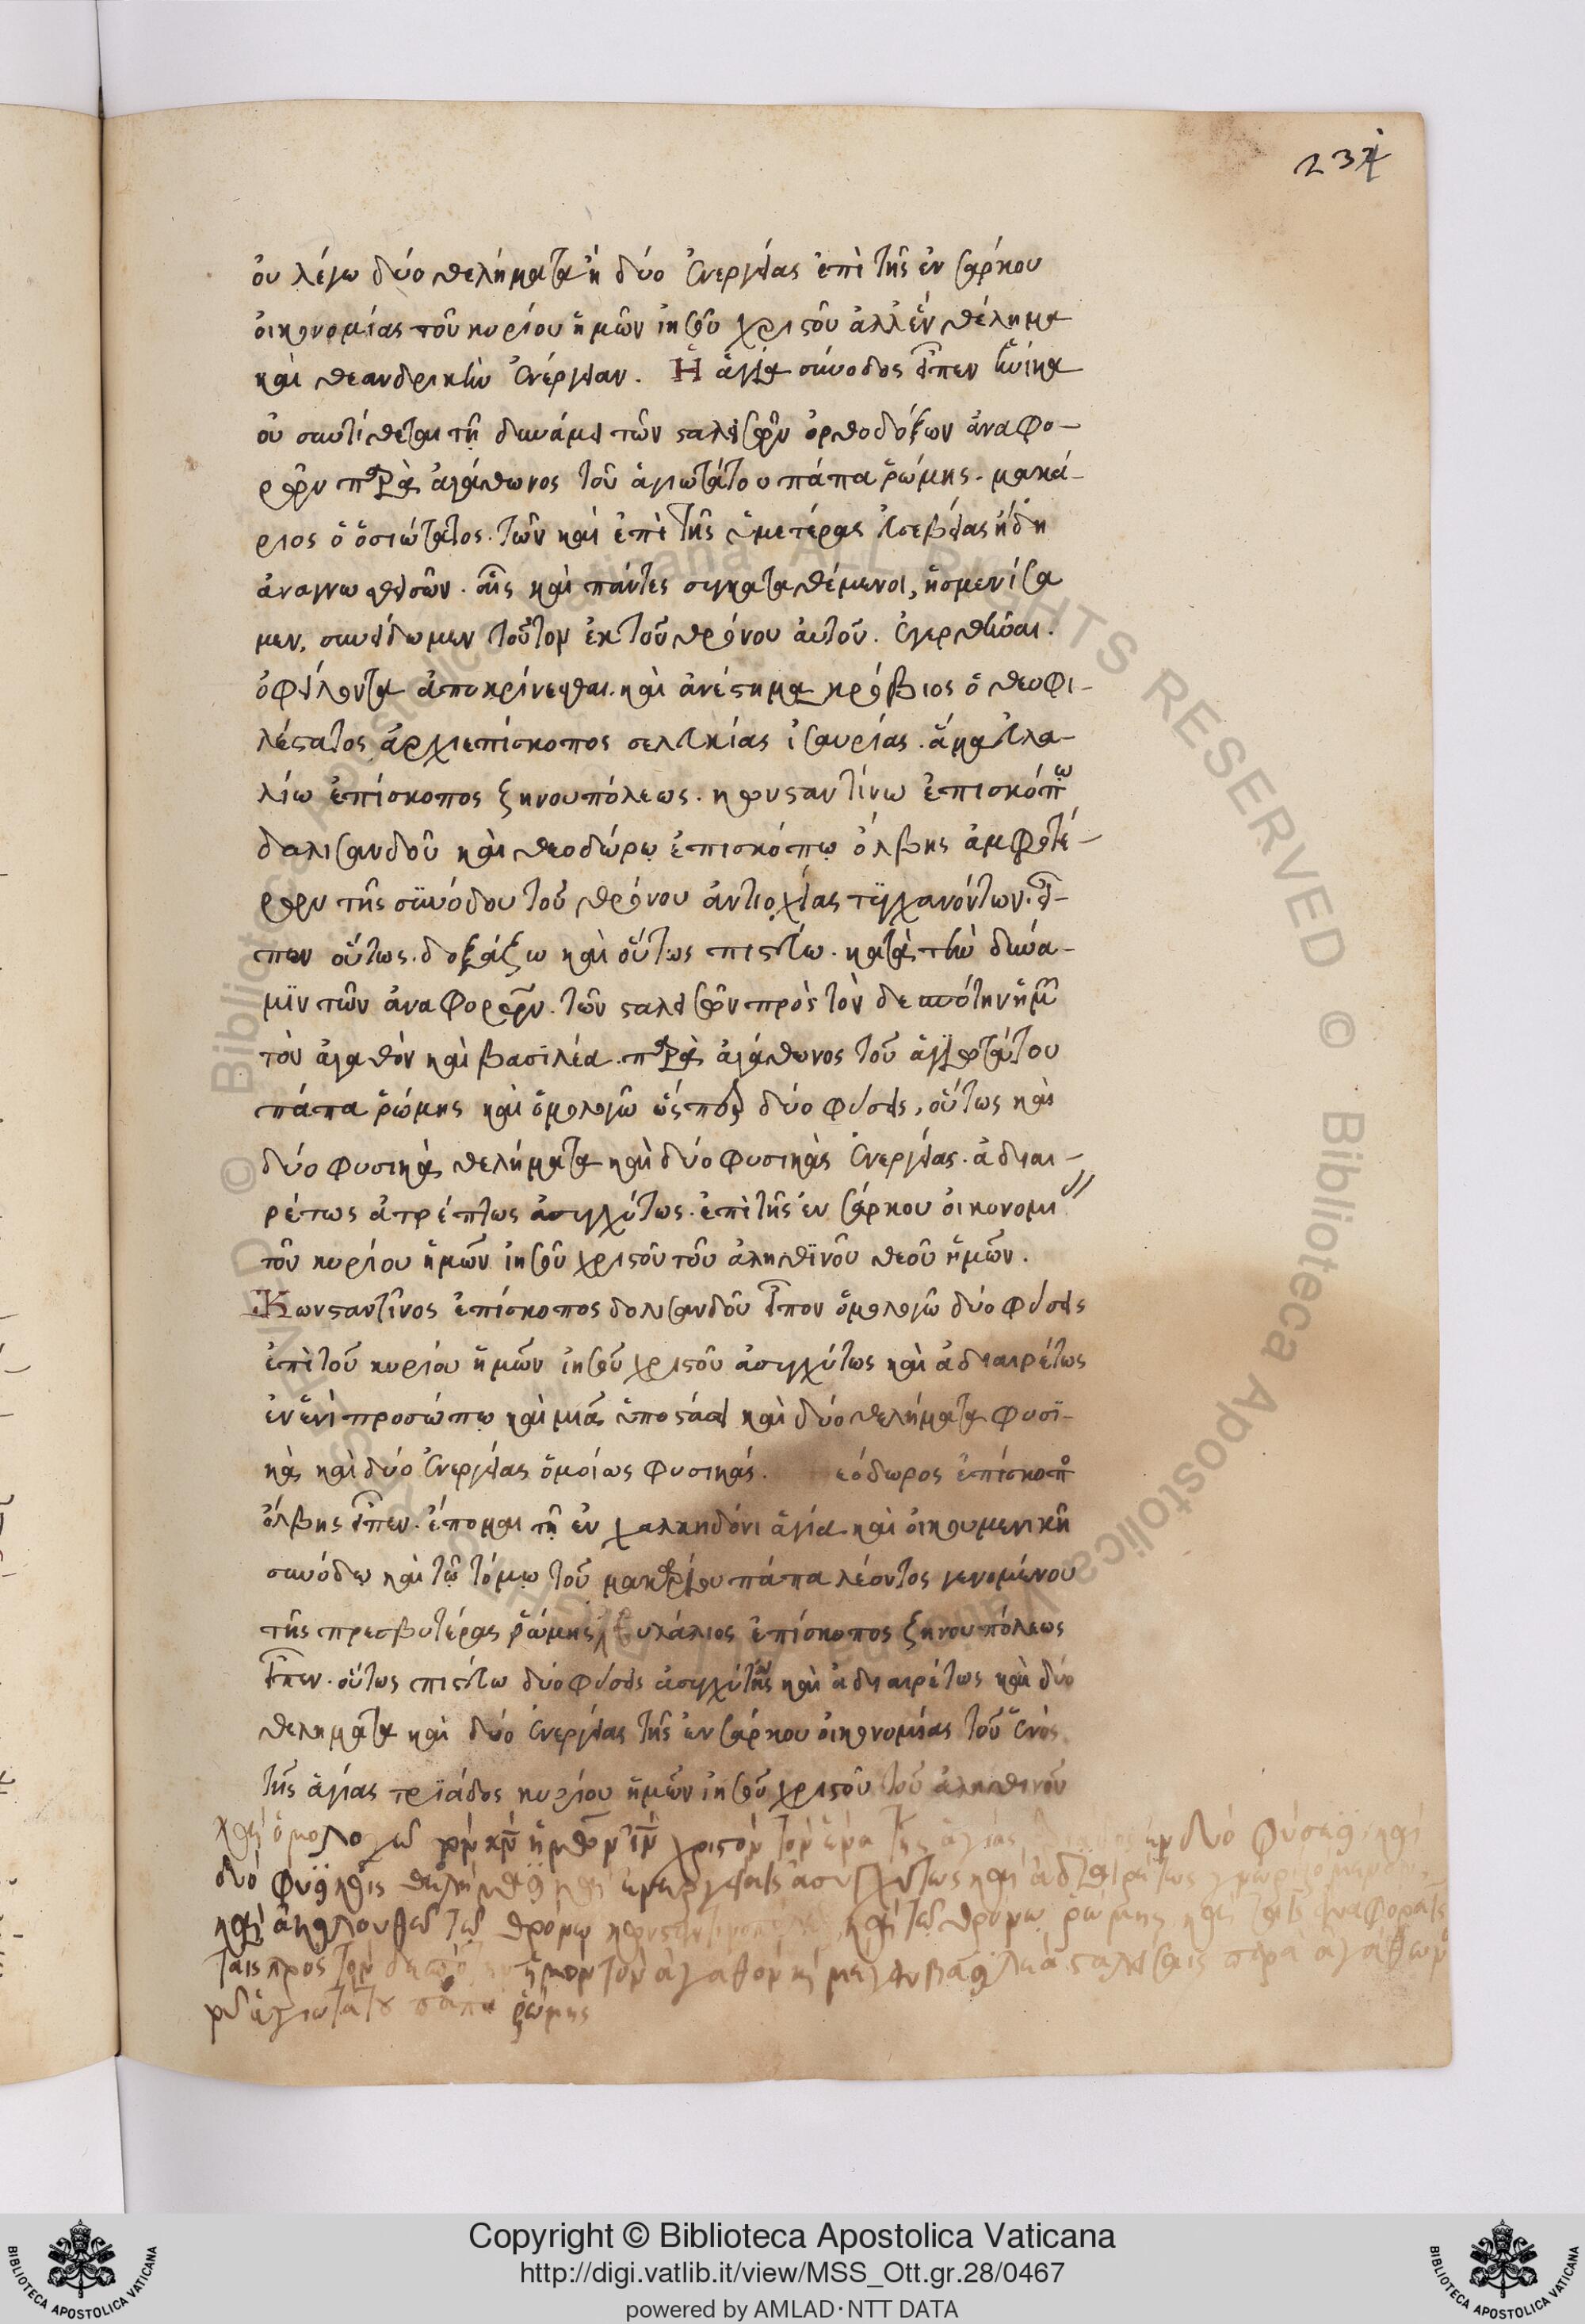 234
οὐ λέγω δύο θελήματα ἢ δύο ἐνεργείας ἐπὶ τῆς ἐν σάρκου
οἰκονομίας τοῦ κυρίου ἡμῶν ἰησοῦ χριστοῦ ἀλλ' ἓν θέλημα
καὶ θεανδρικὴν ἐνέργειαν. Ἡ ἁγία σύνοδος εἶπεν ἡνίκα
οὐ συντίθεται τῇ δυνάμει τῶν σταλεισῶν ὀρθοδόξων ἀναφο-
ρῶν παρὰ ἀγάθωνος τοῦ ἁγιωτάτου πάπα ῥώμης. μακά-
ριος ὁ ὁσιώτατος. τῶν καὶ ἐπὶ τῆς ὑμετέρας εὐσεβείας ἤδη
ἀναγνωσθεισῶν. αἷς καὶ πάντες συγκαταθέμενοι, ἠσμενίσα
μεν, συνείδωμεν τοῦτον ἐκ τοῦ θρόνου αὐτοῦ. ἐγερθῆναι.
ὀφείλοντα ἀποκρίνεσθαι. καὶ ἀνέστημα κρόβιος ὁ θεοφι-
λέστατος ἀρχιεπίσκοπος σελευκίας ἰσαυρίας. ἅμα εὐλα-
λίω ἐπίσκοπος ζηνουπόλεως. κωνσταντίνω ἐπισκόπῳ
δαλισανδοῦ καὶ θεοδώρῳ ἐπισκόπῳ ὄλβης ἀμφοτέ-
ρων τῆς συνόδου τοῦ θρόνου ἀντιοχείας τυγχανόντων. εἶ-
πεν οὕτως. δοξάζω καὶ οὕτως πιστεύω. κατὰ τὴν δύνα-
μϊν τῶν ἀναφορῶν. τῶν σταλεισῶν πρὸς τὸν δεσπότην ἡμῶν
τὸν ἀγαθὸν καὶ βασϊλέα. παρὰ ἀγάθωνος τοῦ ἁγιωτάτου
πάπα ῥώμης καὶ ὁμολογῶ ὥσπερ δύο φύσεις, οὕτως καὶ
δύο φυσικὰ θελήματα καὶ δύο φυσικὰς ἐνεργείας. ἀδιαι-
ρέτως ἀτρέπτως ἀσυγχύτως. ἐπὶ τῆς ἐν σάρκου οἰκονομίας
τοῦ κυρίου ἡμῶν ἰησοῦ χριστοῦ τοῦ ἀληθϊνοῦ θεοῦ ἡμῶν.
Κωνσταντῖνος ἐπίσκοπος δαλισανδοῦ εἶπον ὁμολογῶ δύο φύσεις
ἐπὶ τοῦ κυρίου ἡμῶν ἰησοῦ χριστοῦ ἀσυγχύτως καὶ ἀδιαιρέτως
ἐν ἑνὶ προσώπῳ καὶ μιᾶ ὑποστάσει καὶ δύο θελήματα φυσϊ-
κὰ καὶ δύο ἐνεργείας ὁμοίως φυσικάς. εόδωρος ἐπίσκοπος
ὄλβης εἶπεν. ἕπομαι τῇ ἐν χαλκηδόνι ἁγία καὶ οἰκουμενικῆ
συνόδῳ καὶ τῷ τόμῳ τοῦ μακαρίου πάπα λέοντος γενομένου
τῆς πρεσβυτέρας ῥώμης, Εὐλάλιος ἐπίσκοπος ζηνουπόλεως
εἶπεν. οὕτως πιστεύω δύο φύσεις ἀσυγχύτως καὶ ἀδιαιρέτως καὶ δύο
θελήματα καὶ δύο ἐνεργείας τῆς ἐν σάρκου οἰκονομίας τοῦ ἑνὸς
τῆς ἁγίας τρϊάδος κυρίου ἡμῶν ἰησοῦ χριστοῦ τοῦ ἀληθινοῦ
καὶ ὁμολογῶ χριστὸν τὸν ἕνα τῆς ἁγίας δύο φύσεσϊ καὶ
δυὸ καὶ ἐνεργείαις ἀσυγχύτως καὶ ἀδιαιρέτως γνωριζόμενον
καὶ ἀκολουθῶ τῶ θρόνω καὶ τῶ θρόνω ῥώμης καὶ ταῖς ἀναφοραῖς
ταῖς πρὸς τὸν ἡμῶν τὸν ἀγαθὸν σταλείσαις παρὰ ἀγάθωνος
ἁγιωτάτου πάπα ῥώμης
© Biblioteca Apostolica Vaticana ALL RIGHTS RESERVED
Copyright © Biblioteca Apostolica Vaticana
http://digi.vatlib.it/view/MSS_Ott.gr.28/0467
powered by AMLAD·NTT DATA
BIBLIOTECA APOSTOLICA VATICANA
BIBLIOTECA APOSTOLICA VATICANA